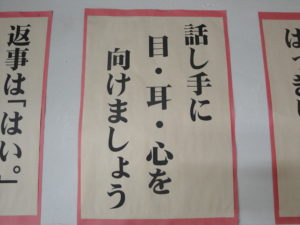 話し手に
目・耳・心を
向けましょう
返事は「はい。」